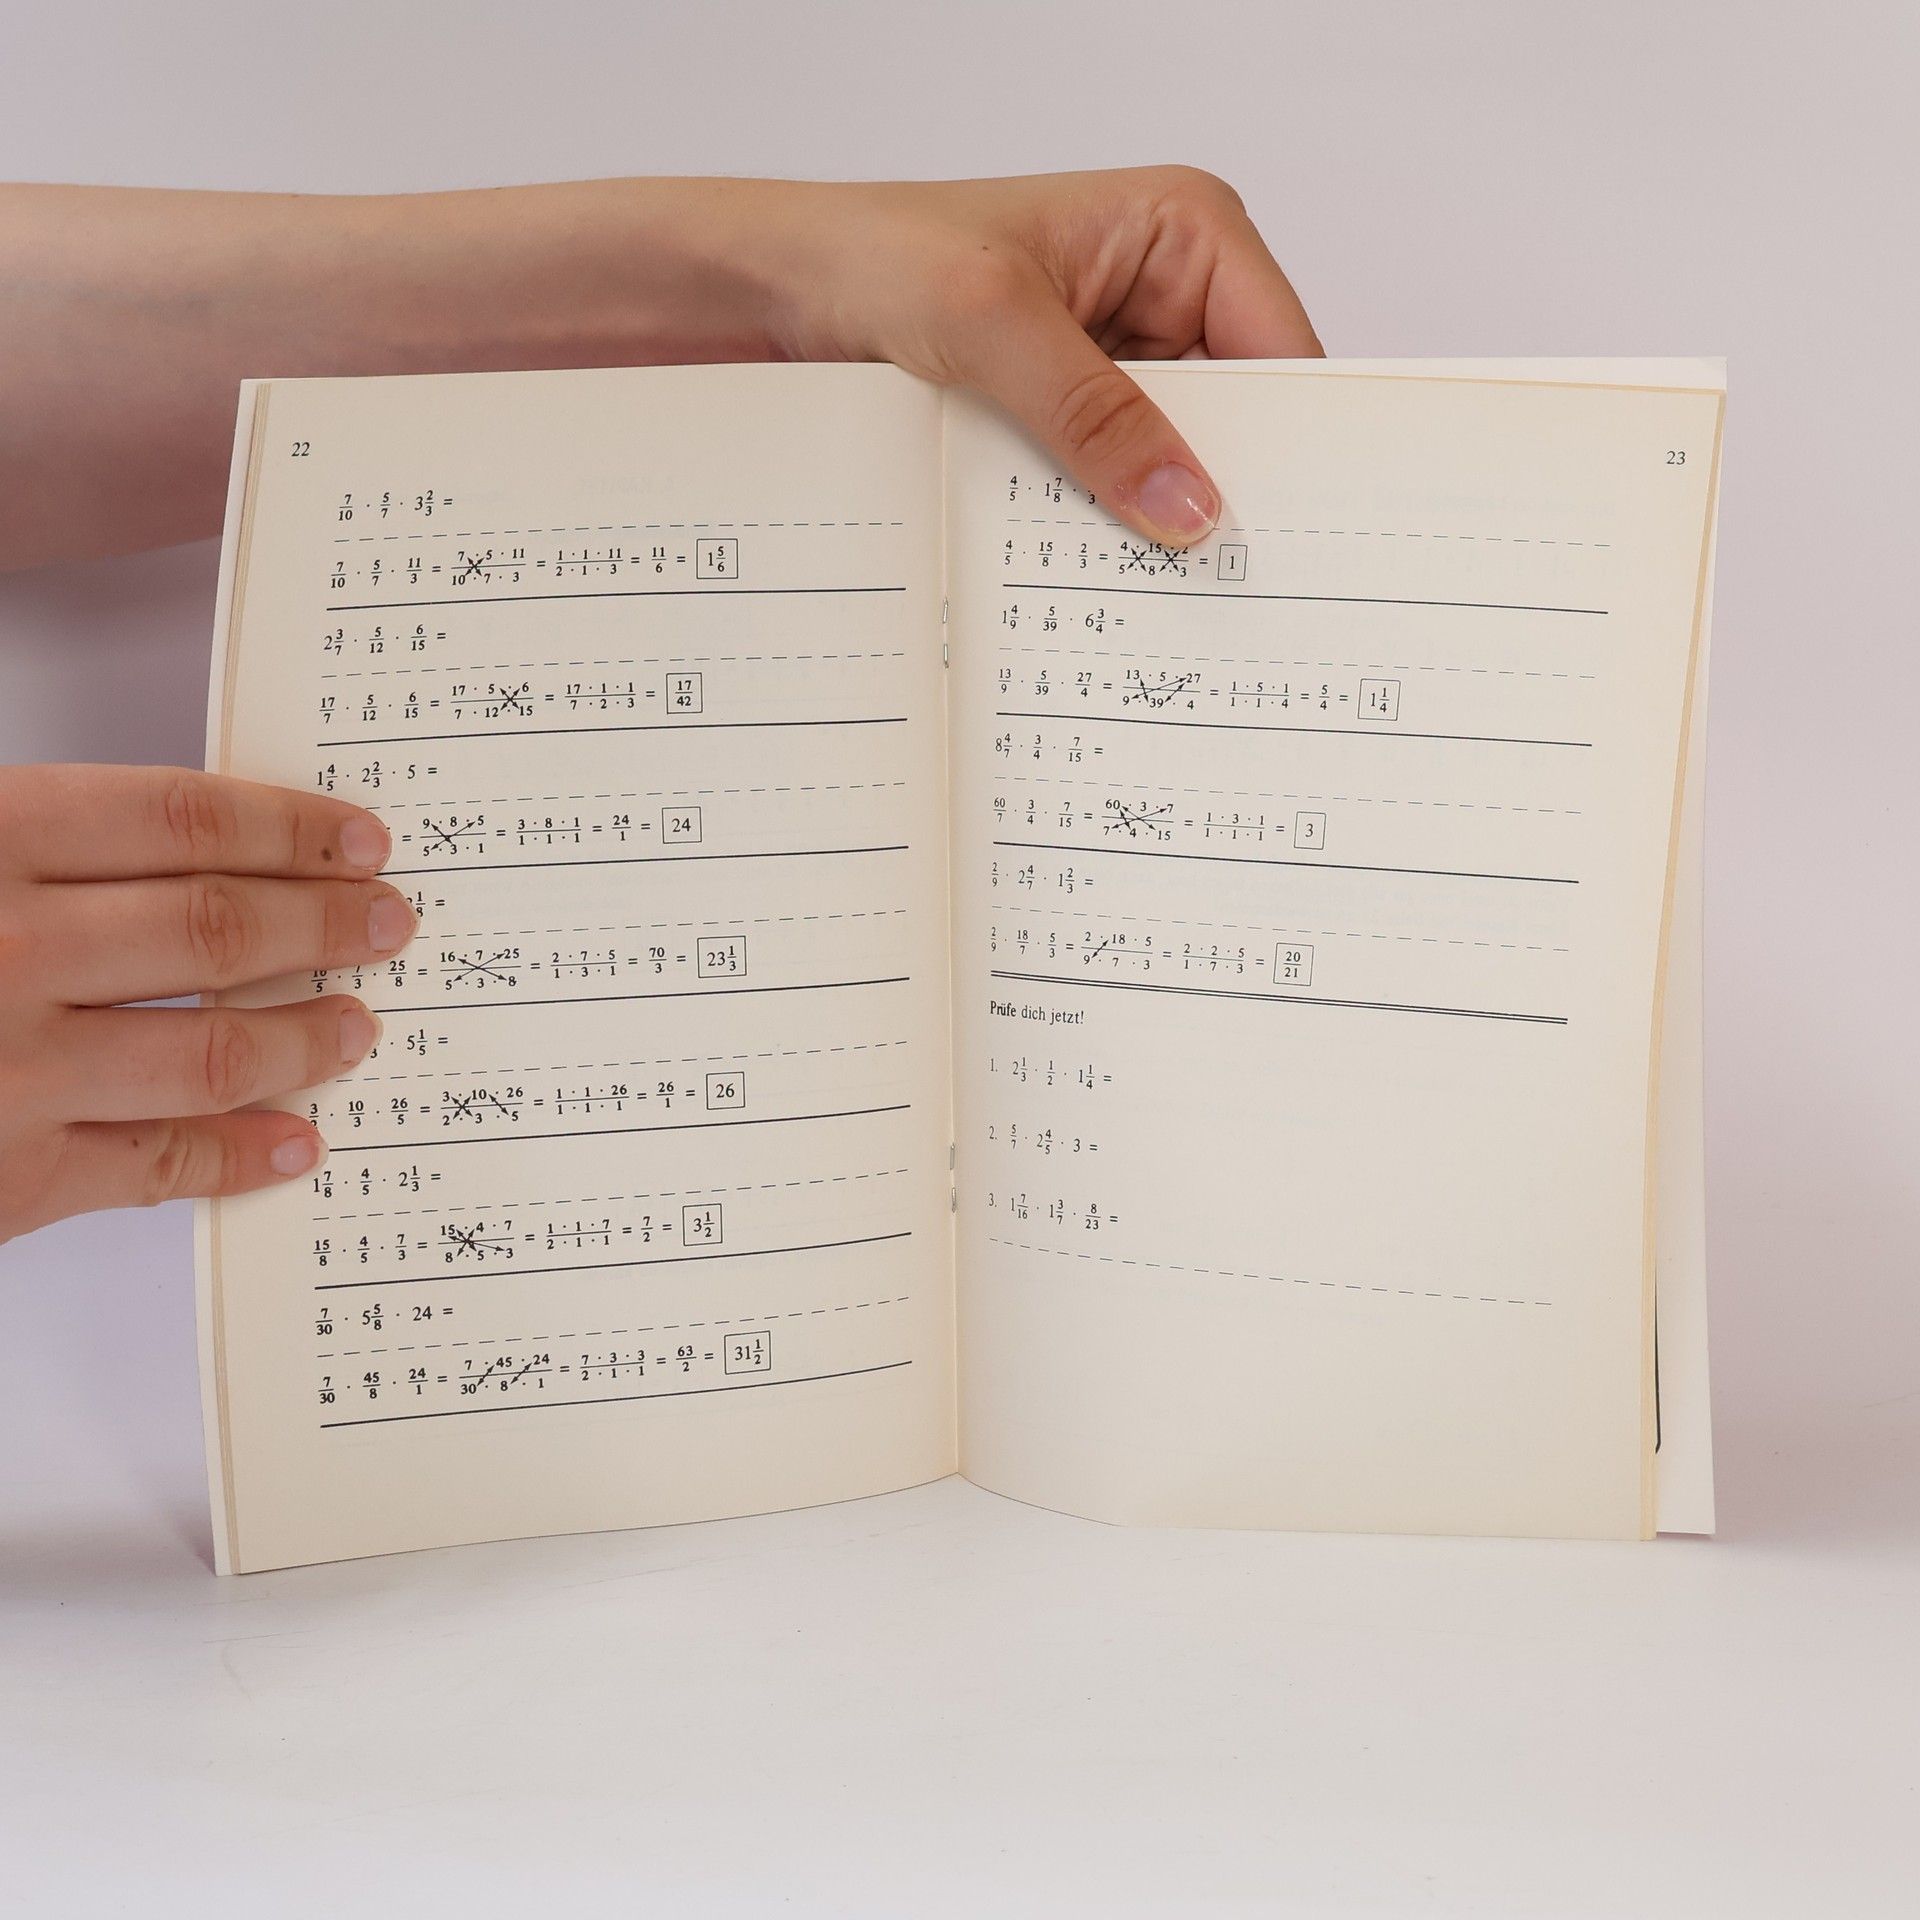 22
7/10 · 5/7 · 3 2/3 =
7/10 · 5/7 · 11/3 = 7 · 5 · 11/10 · 7 · 3 = 1 · 1 · 11/2 · 1 · 3 = 11/6 = 1 5/6
2 3/7 · 5/12 · 6/15 =
17/7 · 5/12 · 6/15 = 17 · 5 · 6/7 · 12 · 15 = 17 · 1 · 1/7 · 2 · 3 = 17/42
1 4/5 · 2 2/3 · 5 =
= 9 · 8 · 5/5 · 3 · 1 = 3 · 8 · 1/1 · 1 · 1 = 24/1 = 24
1/8 =
16/5 · 7/3 · 25/8 = 16 · 7 · 25/5 · 3 · 8 = 2 · 7 · 5/1 · 3 · 1 = 70/3 = 23 1/3
· 5 1/5 =
3/2 · 10/3 · 26/5 = 3 · 10 · 26/2 · 3 · 5 = 1 · 1 · 26/1 · 1 · 1 = 26/1 = 26
1 7/8 · 4/5 · 2 1/3 =
15/8 · 4/5 · 7/3 = 15 · 4 · 7/8 · 5 · 3 = 1 · 1 · 7/2 · 1 · 1 = 7/2 = 3 1/2
7/30 · 5 5/8 · 24 =
7/30 · 45/8 · 24/1 = 7 · 45 · 24/30 · 8 · 1 = 7 · 3 · 3/2 · 1 · 1 = 63/2 = 31 1/2
23
4/5 · 1 7/8 ·
4/5 · 15/8 · 2/3 = 4 · 15 · 2/5 · 8 · 3 = 1
1 4/9 · 5/39 · 6 3/4 =
13/9 · 5/39 · 27/4 = 13 · 5 · 27/9 · 39 · 4 = 1 · 5 · 1/1 · 1 · 4 = 5/4 = 1 1/4
8 4/7 · 3/4 · 7/15 =
60/7 · 3/4 · 7/15 = 60 · 3 · 7/7 · 4 · 15 = 1 · 3 · 1/1 · 1 · 1 = 3
2/9 · 2 4/7 · 1 2/3 =
2/9 · 18/7 · 5/3 = 2 · 18 · 5/9 · 7 · 3 = 2 · 2 · 5/1 · 7 · 3 = 20/21
Prüfe dich jetzt!
1. 2 1/3 · 1/2 · 1 1/4 =
2. 5/7 · 2 4/5 · 3 =
3. 1 7/16 · 1 3/7 · 8/23 =